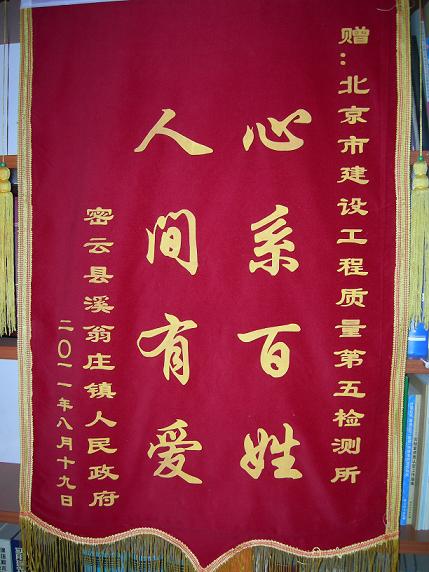 赠：北京市建设工程质量第五检测所
心系百姓
人间有爱
密云县溪翁庄镇人民政府
二〇一一年八月十九日